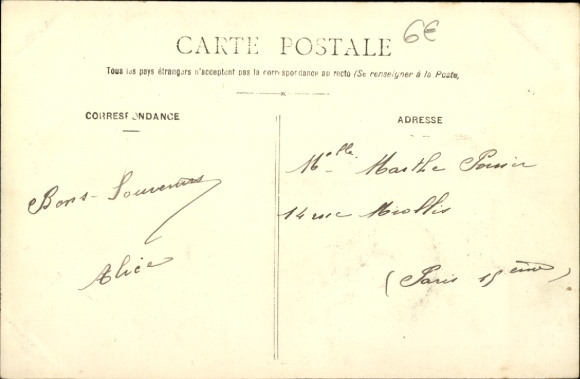 6€
CARTE POSTALE
Tous les pays étrangers n'acceptent pas la correspondance au recto (Se renseigner à la Poste)
CORRESPONDANCE
ADRESSE
Bons Souvenirs
Alice
Melle Marthe
14 rue Miollis
(Paris 15ème)